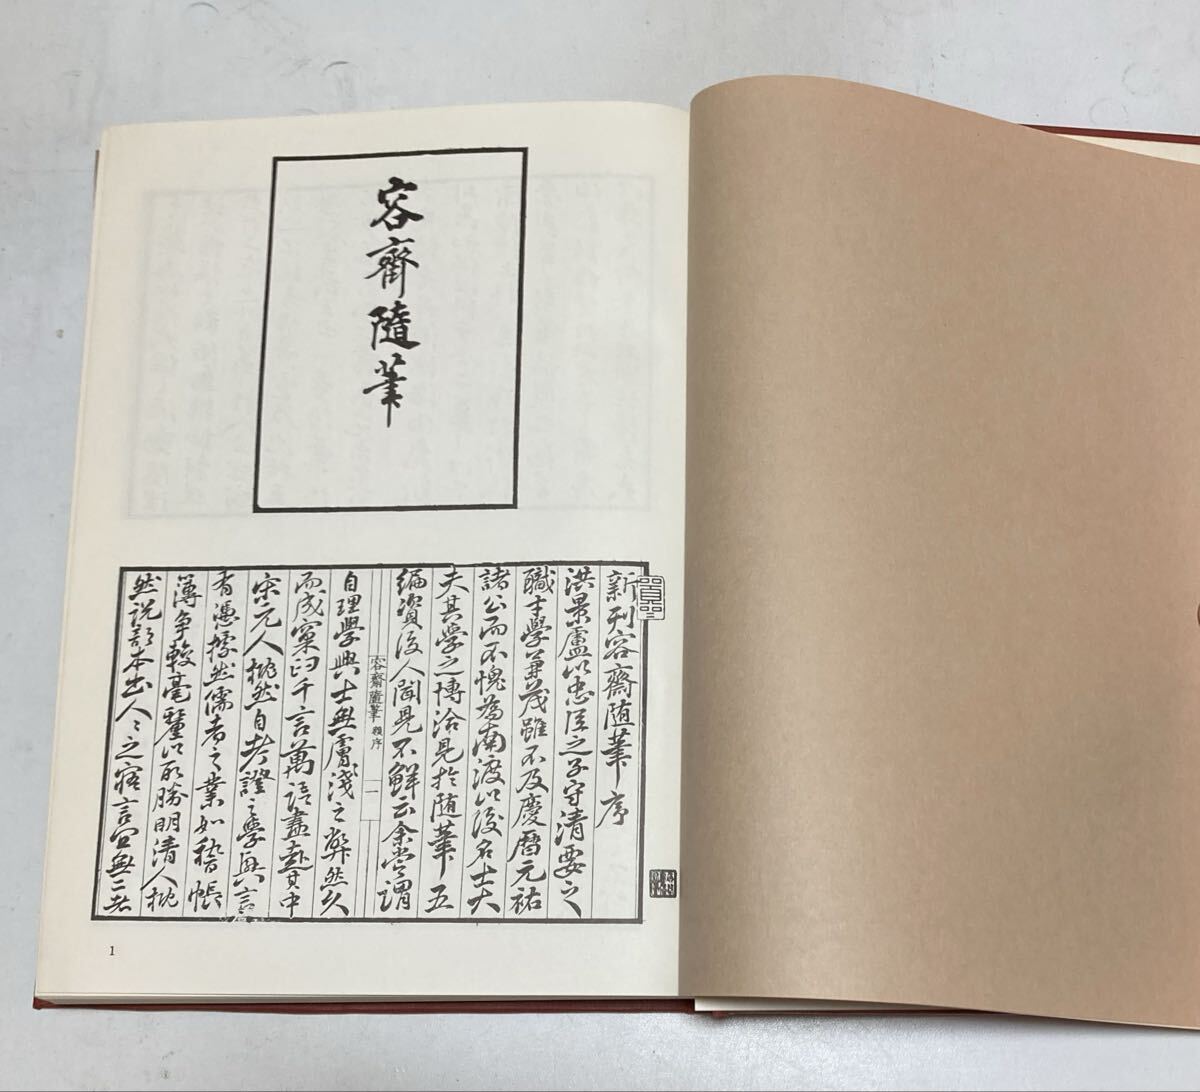 容齋隨筆
新刊容齋随筆序
洪景盧以忠臣之子守清要之
職才學兼茂雖不及慶曆元祐
諸公而不愧為南渡以後名士大
夫其學之博洽見於随筆五
編資後人聞見不鮮云余嘗謂
容齋隨筆 序 一
自理學興士無膚淺之弊然久
而成窠臼千言萬語盡其中
宋元人然自考證之學興言
有憑據然儒者之業如稽帳
簿争較毫釐以勝明清人
然說部本出人々之言宜無二
1